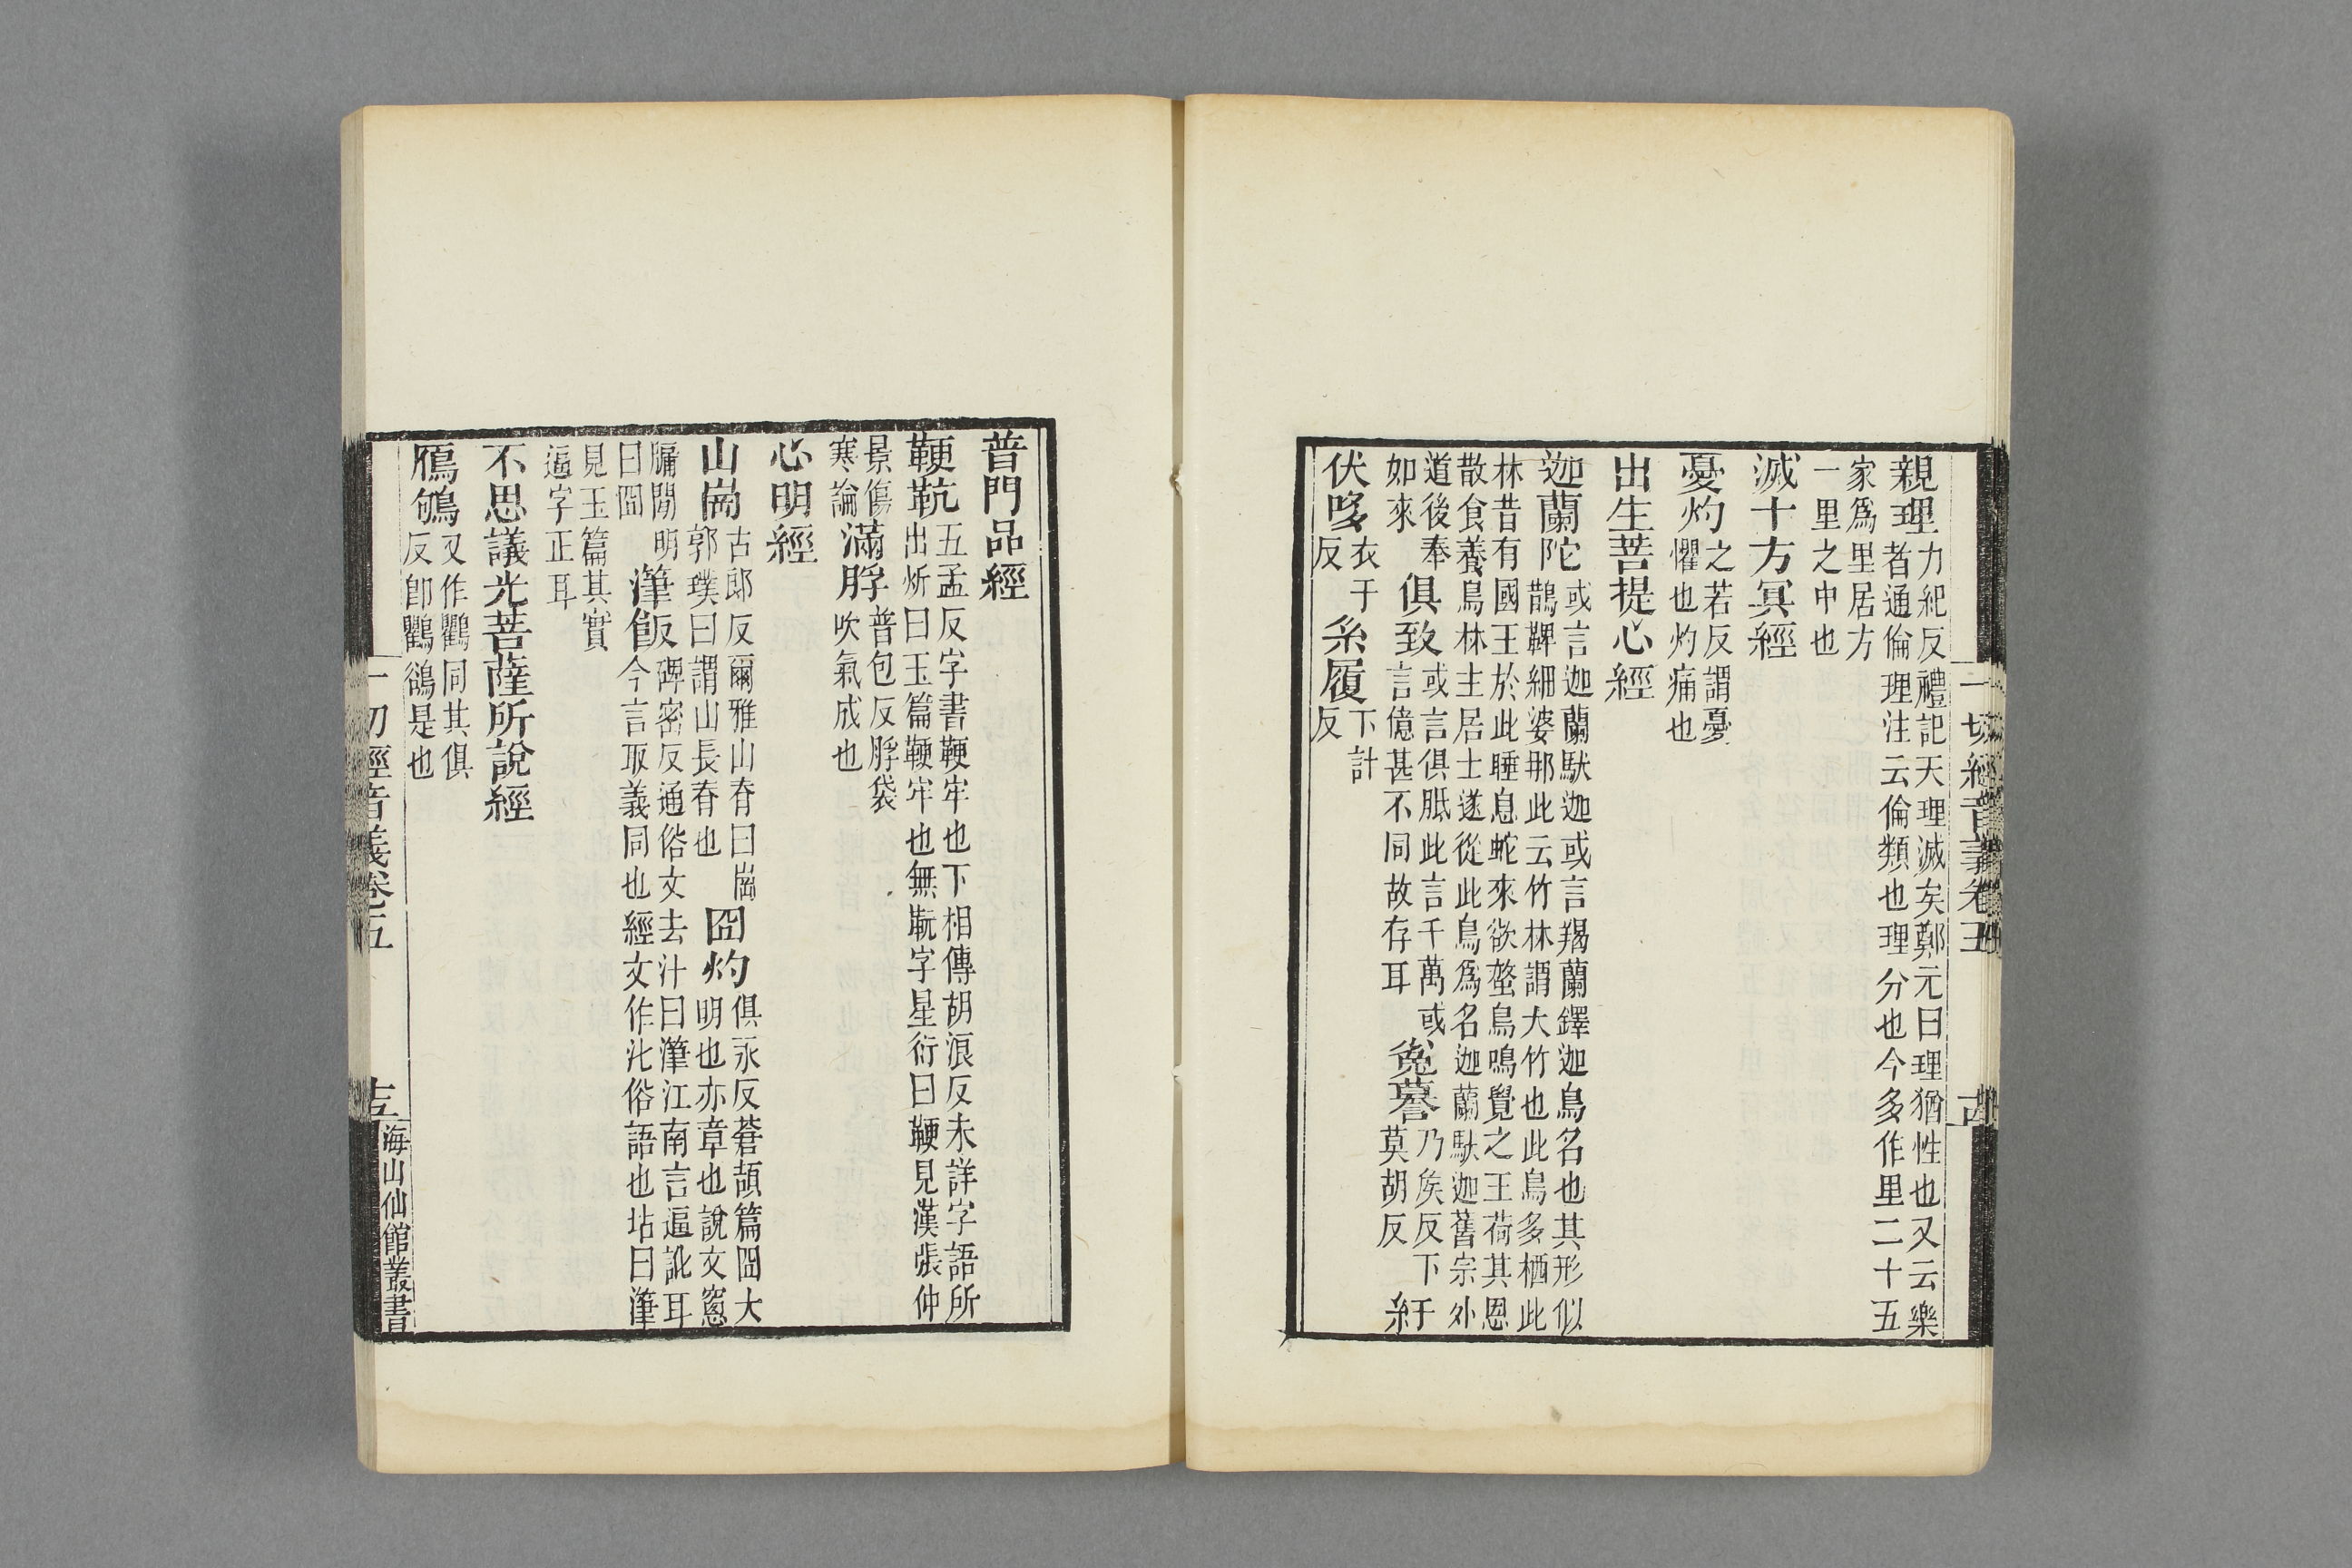 親理力紀反禮記天理滅矣鄭元曰理猶性也又云樂
者通倫理注云倫類也理分也今多作里二十五
家爲里居方
一里之中也
滅十方冥經
憂灼之若反謂憂
懼也灼痛也
出生菩提心經
迦蘭陀或言迦蘭馱迦或言羯蘭鐸迦鳥名也其形似
鵲鞞細婆那此云竹林謂大竹也此鳥多栖此
林昔有國王於此睡息蛇來欲螫鳥鳴覺之王荷其恩
散食養鳥林主居士遂從此鳥爲名迦蘭馱迦舊宗外
道後奉
如來
俱致或言俱胝此言千萬或
言億甚不同故存耳
㝹𦿔乃矦反下
莫胡反
紆
伏哆衣于
反
糸履下計
反
一切經音義卷五
古
普門品經
鞕䩑五孟反字書鞕牢也下相傳胡浪反未詳字語所
出炘曰玉篇鞕牢也無䩑字星衍曰鞕見漢張仲
景傷
寒論
滿脬普包反脬袋
吹氣成也
心明經
山崗古郎反爾雅山脊曰崗
郭璞曰謂山長脊也
囧灼俱永反蒼頡篇囧大
明也亦章也說文窻
牖閒明
曰囧
潷飯碑密反通俗文去汁曰潷江南言逼訛耳
今言取義同也經文作沘俗語也坫曰潷
見玉篇其實
逼字正耳
不思議光菩薩所說經
鴈鴝又作鸜同其俱
反卽鸜鵒是也
一切經音義卷五
十五
海山仙館叢書